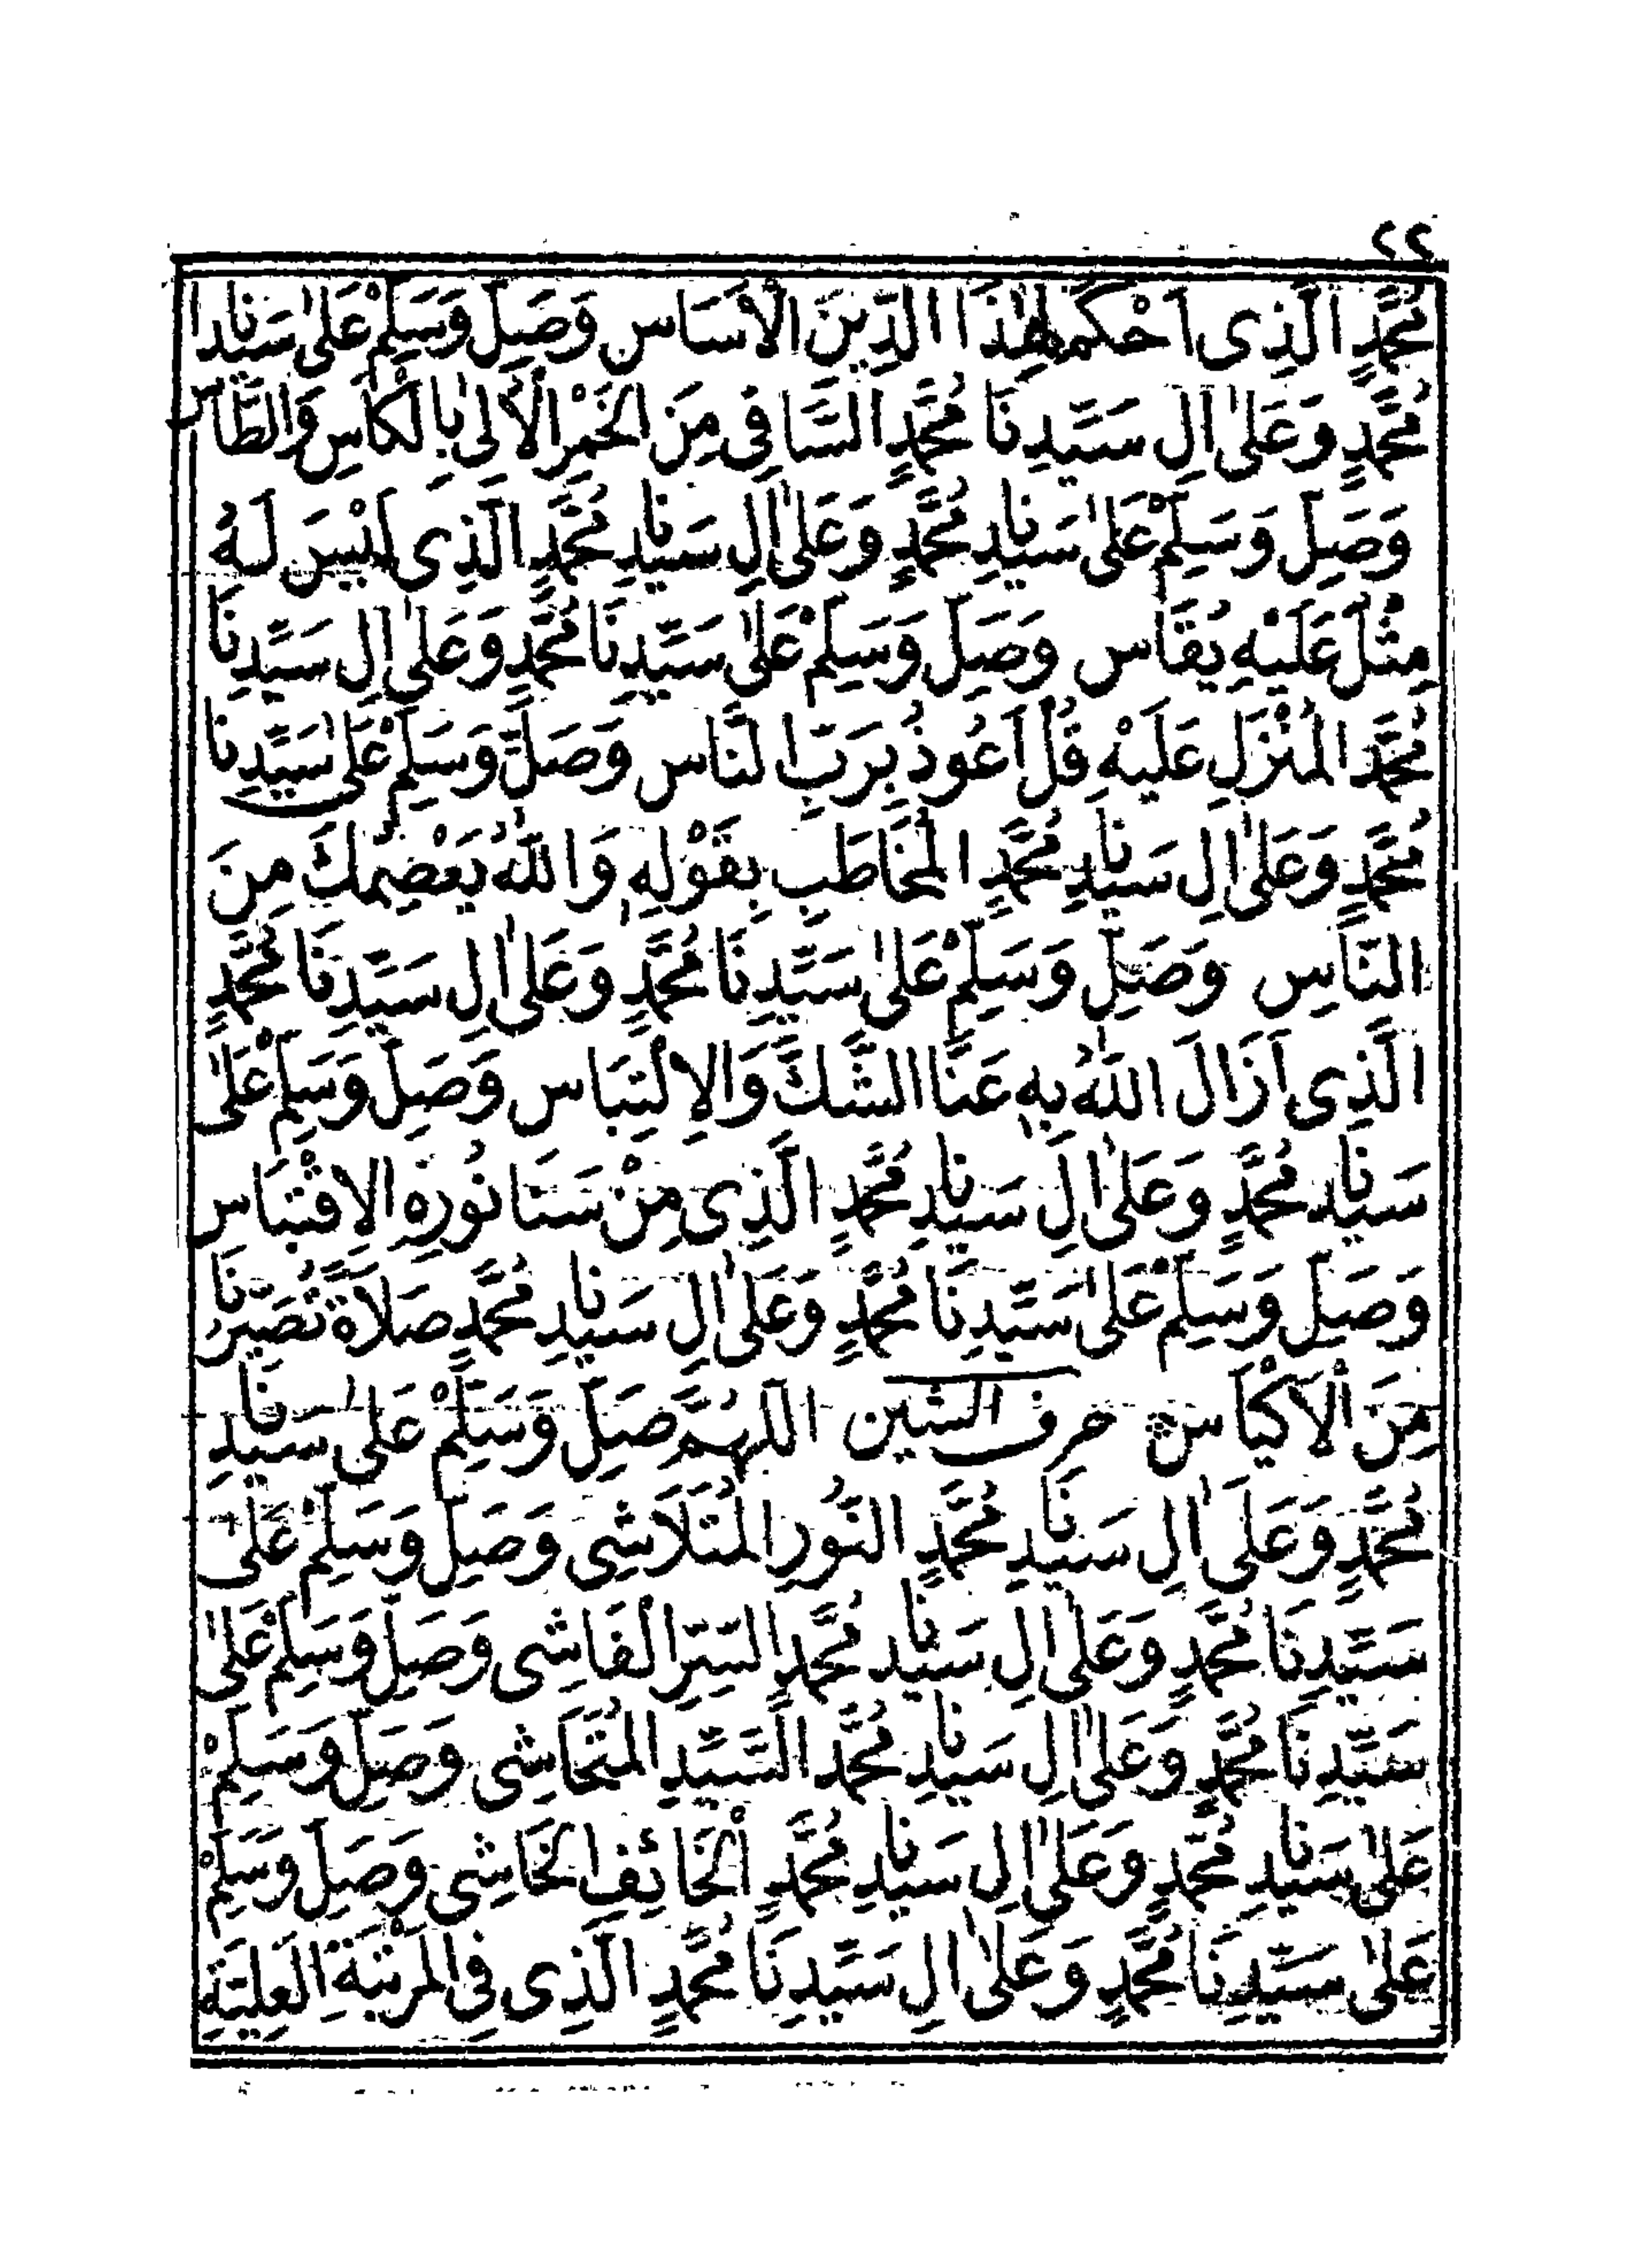 ٢٢
مُحَمَّدٍ الَّذِى اَحْكَمَ لِهٰذَا الدِّينَ الْاَسَاس وَصَلِّ وَسَلِّمْ عَلىٰ سَيِّدِنَا
مُحَمَّدٍ وَعَلىٰ اٰلِ سَيِّدِنَا مُحَمَّدٍ السَّاقِى مِنَ الخَمْرِ الْأُلىٰ بِالْكَاسِ وَالطَّاس
وَصَلِّ وَسَلِّمْ عَلىٰ سَيِّدِنَا مُحَمَّدٍ وَعَلىٰ اٰلِ سَيِّدِنَا مُحَمَّدٍ الَّذِى لَيْسَ لَهُ
مِثْلٌ عَلَيْهِ يُقَاس وَصَلِّ وَسَلِّمْ عَلىٰ سَيِّدِنَا مُحَمَّدٍ وَعَلىٰ اٰلِ سَيِّدِنَا
مُحَمَّد المُنْزَلِ عَلَيْهِ قُلْ اَعُوذُ بِرَبِّ النَّاس وَصَلِّ وَسَلِّمْ عَلىٰ سَيِّدِنَا
مُحَمَّدٍ وَعَلىٰ اٰلِ سَيِّدِنَا مُحَمَّدٍ المُخَاطَبِ بِقَوْلِهِ وَاللّٰهُ يَعْصِمُكَ مِنَ
النَّاسِ وَصَلِّ وَسَلِّمْ عَلىٰ سَيِّدِنَا مُحَمَّدٍ وَعَلىٰ اٰلِ سَيِّدِنَا مُحَمَّدٍ
الَّذِى اَزَالَ اللّٰهُ بِهِ عَنَّا الشَّكَّ وَالاِلْتِبَاس وَصَلِّ وَسَلِّمْ عَلىٰ
سَيِّدِنَا مُحَمَّدٍ وَعَلىٰ اٰلِ سَيِّدِنَا مُحَمَّدٍ الَّذِى مِنْ سَنَا نُورِهِ الاِقْتِبَاس
وَصَلِّ وَسَلِّمْ عَلىٰ سَيِّدِنَا مُحَمَّدٍ وَعَلىٰ اٰلِ سَيِّدِنَا مُحَمَّدٍ صَلَاةً تُصَيِّرُنَا
مِنَ الْاَكْيَاس حرف الشين اللّٰهُمَّ صَلِّ وَسَلِّمْ عَلىٰ سَيِّدِنَا
مُحَمَّدٍ وَعَلىٰ اٰلِ سَيِّدِنَا مُحَمَّدٍ النُّورِ المُتَلَاشِى وَصَلِّ وَسَلِّمْ عَلىٰ
سَيِّدِنَا مُحَمَّدٍ وَعَلىٰ اٰلِ سَيِّدِنَا مُحَمَّدٍ السِّرِّ الْفَاشِى وَصَلِّ وَسَلِّمْ عَلىٰ
سَيِّدِنَا مُحَمَّدٍ وَعَلىٰ اٰلِ سَيِّدِنَا مُحَمَّد السَّيِّدِ المُتَحَاشِى وَصَلِّ وَسَلِّمْ
عَلىٰ سَيِّدِنَا مُحَمَّدٍ وَعَلىٰ اٰلِ سَيِّدِنَا مُحَمَّدٍ الْخَائِفِ الخَاشِى وَصَلِّ وَسَلِّمْ
عَلىٰ سَيِّدِنَا مُحَمَّدٍ وَعَلىٰ اٰلِ سَيِّدِنَا مُحَمَّدٍ الَّذِى فِى المَرْتَبَةِ العَلِيَّةِ